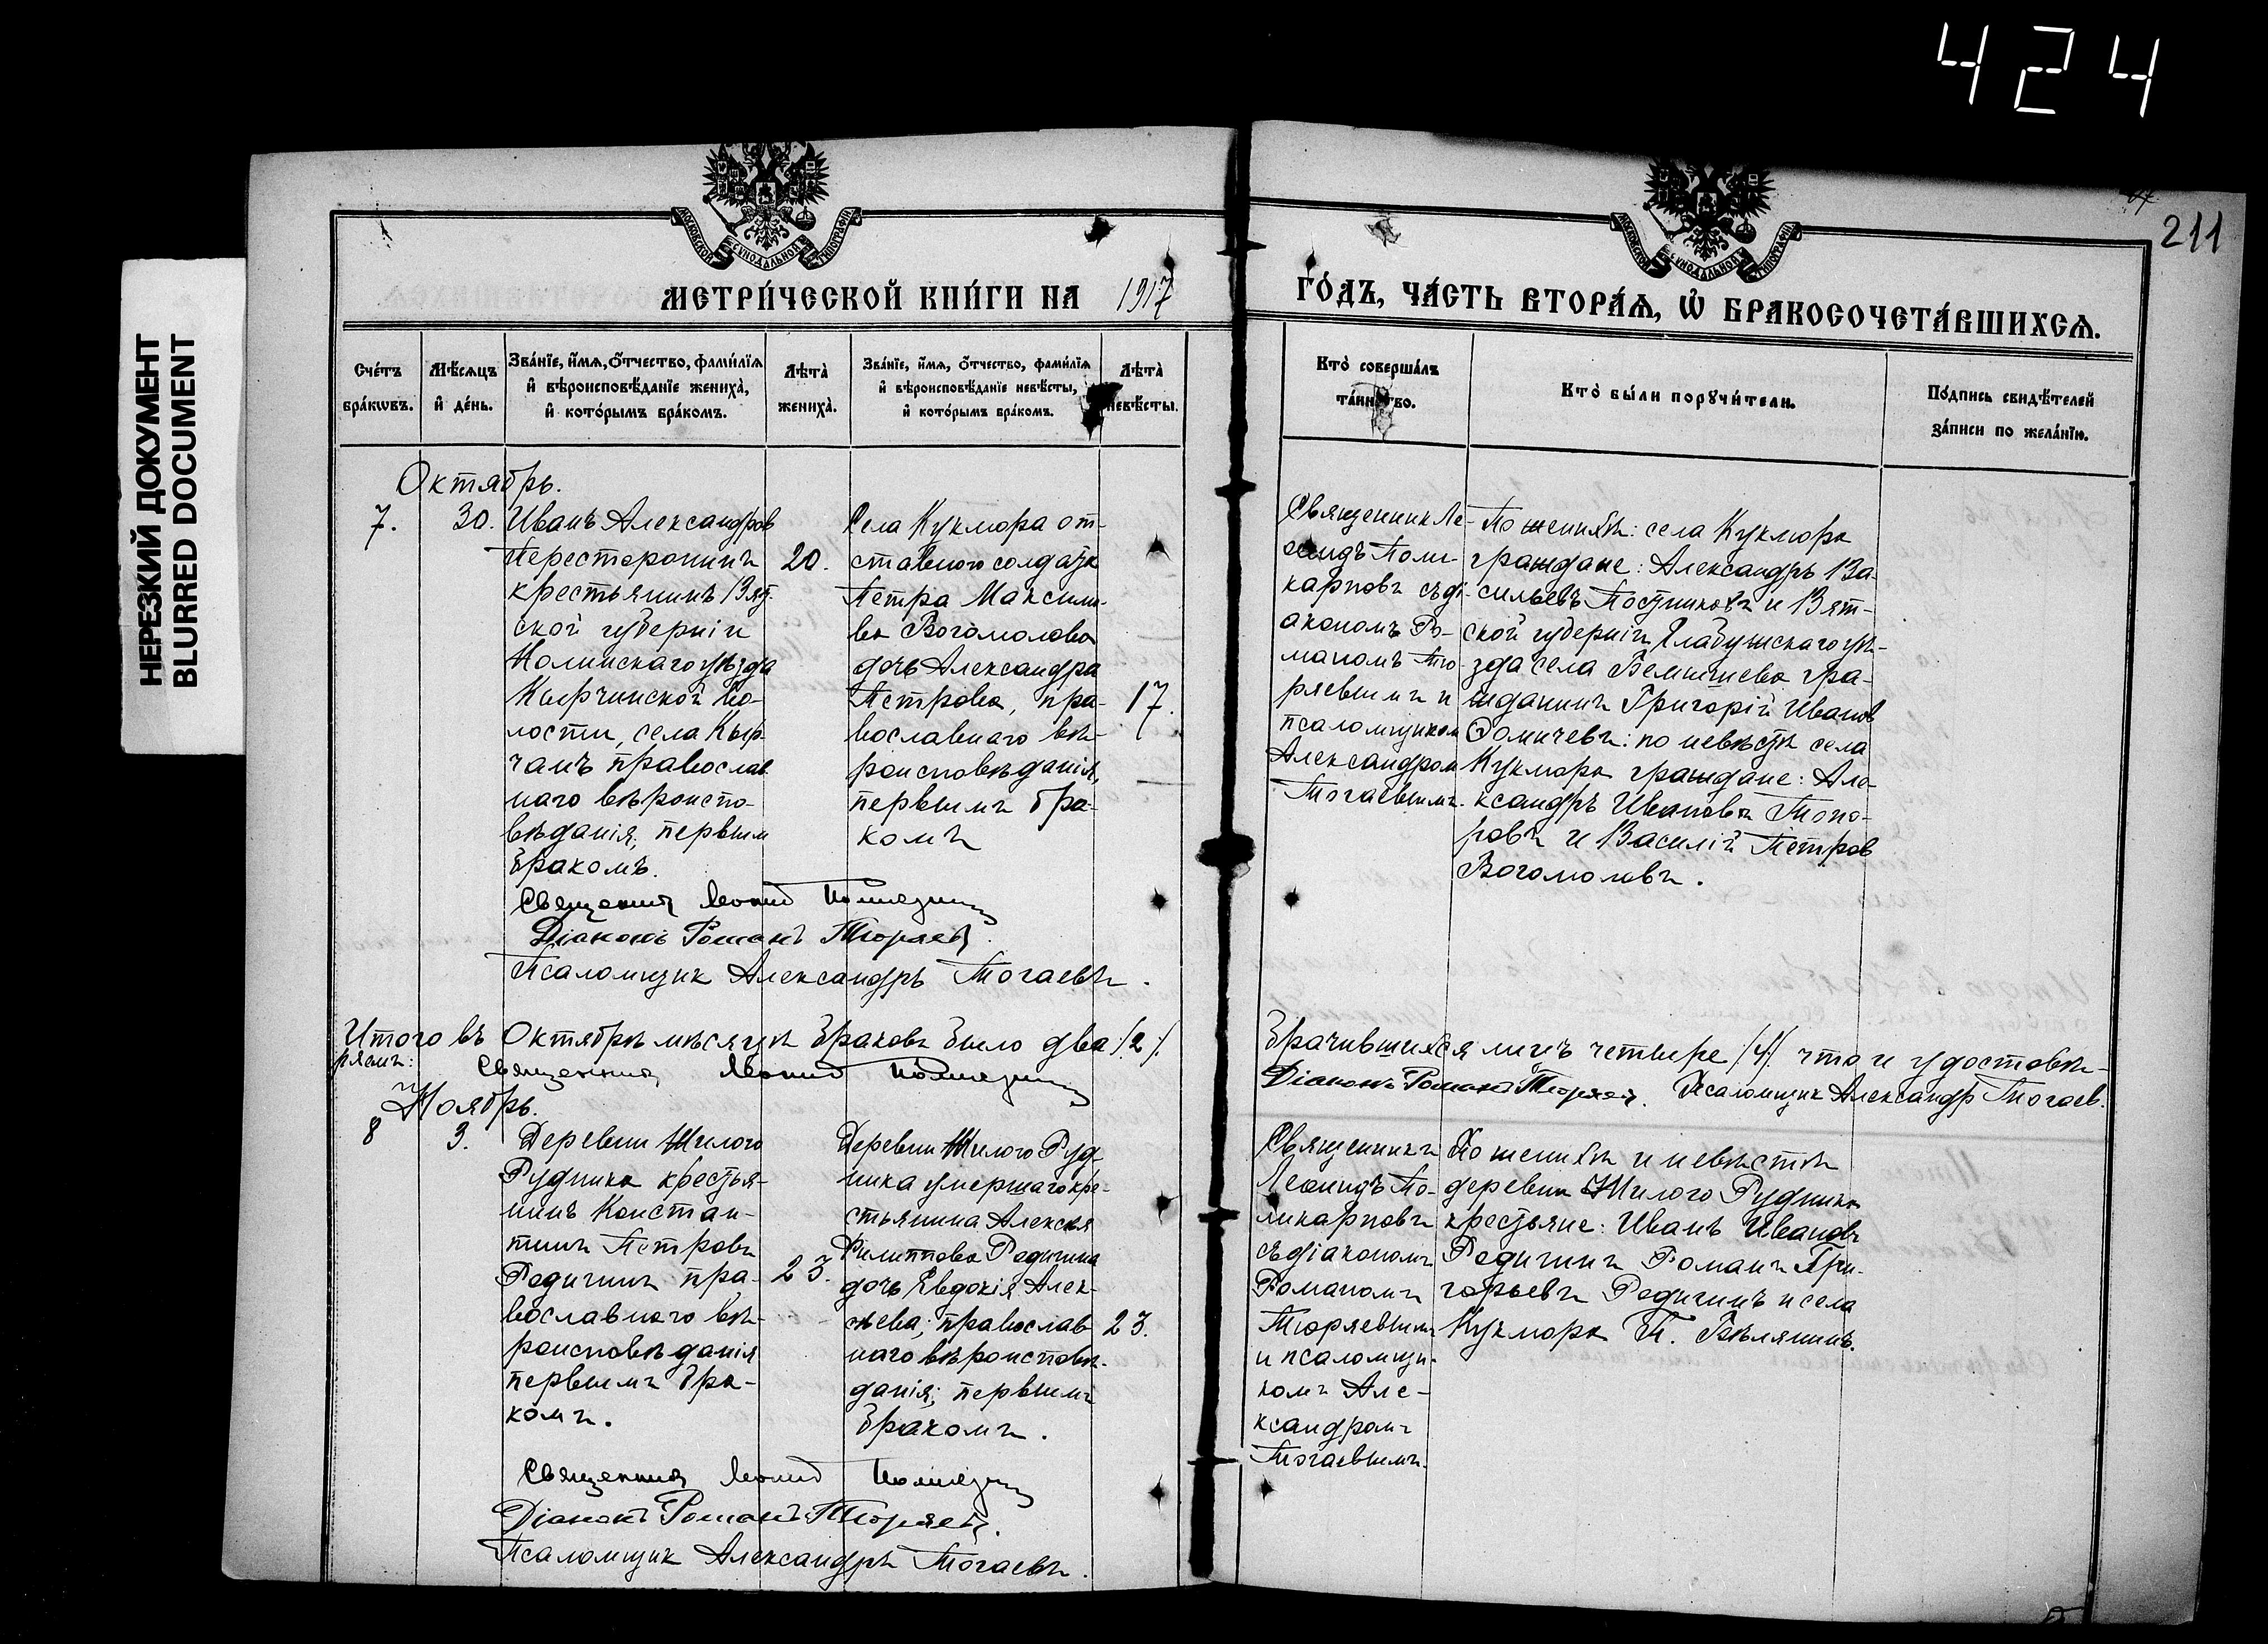 424
НЕРЕЗКИЙ ДОКУМЕНТ
BLURRED DOCUMENT
211
МОСКОВСКОЙ СѴНОДАЛЬНОЙ ТИПОГРАФІИ
МОСКОВСКОЙ СѴНОДАЛЬНОЙ ТИПОГРАФІИ
МЕТРИ́ЧЕСКОЙ КНИ́ГИ НА 1917
ГО́ДЪ, ЧА́СТЬ ВТОРА́Ѧ, Ѽ БРАКОСОЧЕТА́ВШИХСѦ.
Сче́тъ
бра́кѡвъ.
Мѣ́сяцъ
и҆ де́нь.
Зва́нїе, и҆́мя, ѻ҆́тчество, фами́лїя
и҆ вѣроисповѣ́данїе жениха̀,
и҆ кото́рымъ бра́комъ.
Лѣта̀
жениха̀.
Зва́нїе, и҆́мя, ѻ҆́тчество, фами́лїя
и҆ вѣроисповѣ́данїе невѣ́сты,
и҆ кото́рымъ бра́комъ.
Лѣта̀
невѣ́сты.
Кто̀ соверша́лъ
та́инство.
Кто̀ бы́ли порꙋчи́тели.
По́дпись свидѣ́телей
за́писи по жела́нїю.
Октябрь.
7.
30.
Иванъ Александров
Пересторонинъ
крестьянинъ Вят-
ской губерніи
Нолинскаго уѣзда
Кырчинской во-
лости, села Кыр-
чанъ православ
наго вѣроиспо-
вѣданія, первым
бракомъ.
20.
Села Кукмора от-
ставного солдата
Петра Максимо-
ва Богомолова
дочь Александра
Петрова, пра-
вославнаго вѣ-
роисповѣданія,
первымъ бра-
комъ
17.
Священник Ле-
онидъ Поли-
карповъ съ ді-
акономъ Ро-
маномъ Тю-
ряевымъ и
псаломщиком
Александром
Тогаевымъ.
По женихѣ: села Кукмора
граждане: Александръ Ва-
сильевъ Постниковъ и Вят-
ской губерніи, Елабужскаго уѣ-
зда села Бемышева гра-
жданинъ Григорій Иванов
Ѳомичевъ: по невѣстѣ села
Кукмора граждане: Але-
ксандръ Ивановъ Топо-
ровъ и Василій Петров
Богомоловъ.
Священник Леонид
Діаконъ Романъ Тюряевъ.
Псаломщик Александръ Тогаевъ.
Итого въ Октябрѣ мѣсяцѣ браковъ было два /2/.
Брачившихся лицъ четыре /4/ что и удостовѣ-
ряемъ:
Священник Леонид
Діаконъ Романъ Тюряевъ. Псаломщик Александр Тогаев.
Ноябрь.
8
3.
Деревни Жилого
Рудника крестья-
нинъ Констан-
тинъ Петровъ
Редичинъ пра-
вославнаго вѣ-
роисповѣданія
первымъ бра-
комъ.
23.
Деревни Жилого Руд-
ника умершаго кре-
стьянина Алексѣя
Филиппова Редичина
дочь Евдокія Алек-
сѣева; православ
наго вѣроисповѣ-
данія; первымъ
бракомъ.
23.
Священникъ
Леонидъ По-
ликарповъ
съ діакономъ
Романомъ
Тюряевымъ
и псаломщи-
комъ Але-
ксандромъ
Тогаевымъ.
По женихѣ и невѣстѣ
деревни Жилого Рудника
крестьяне: Иванъ Ивановъ
Редичинъ Романъ Гри-
горьевъ Редичинъ и села
Кукмора П. Бѣлянинъ.
Священник Леонид
Діаконъ Романъ Тюряевъ.
Псаломщик Александръ Тогаевъ.